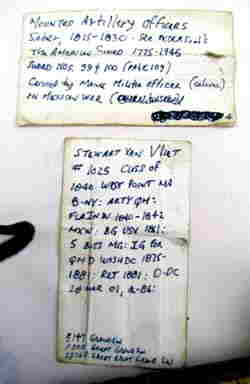 Mounted Artillery Officers
Saber, 1815-1830. See Peterson's
The American Sword 1775-1945
Sword Nos. 99 & 100 (Page 109)
Carried by Maine Militia Officer
in Mexican War
Stewart Van Vliet
# 1025 Class of
1840 West Point MA
B-NY: ARTY QM:
FLA IN W 1840-1842
MXW: BG USV 1861:
5 BVTS MG: IG FOR
QMD WASH DC 1875-
1881: RET 1881: D-DC
28 MAR 01, A-86: